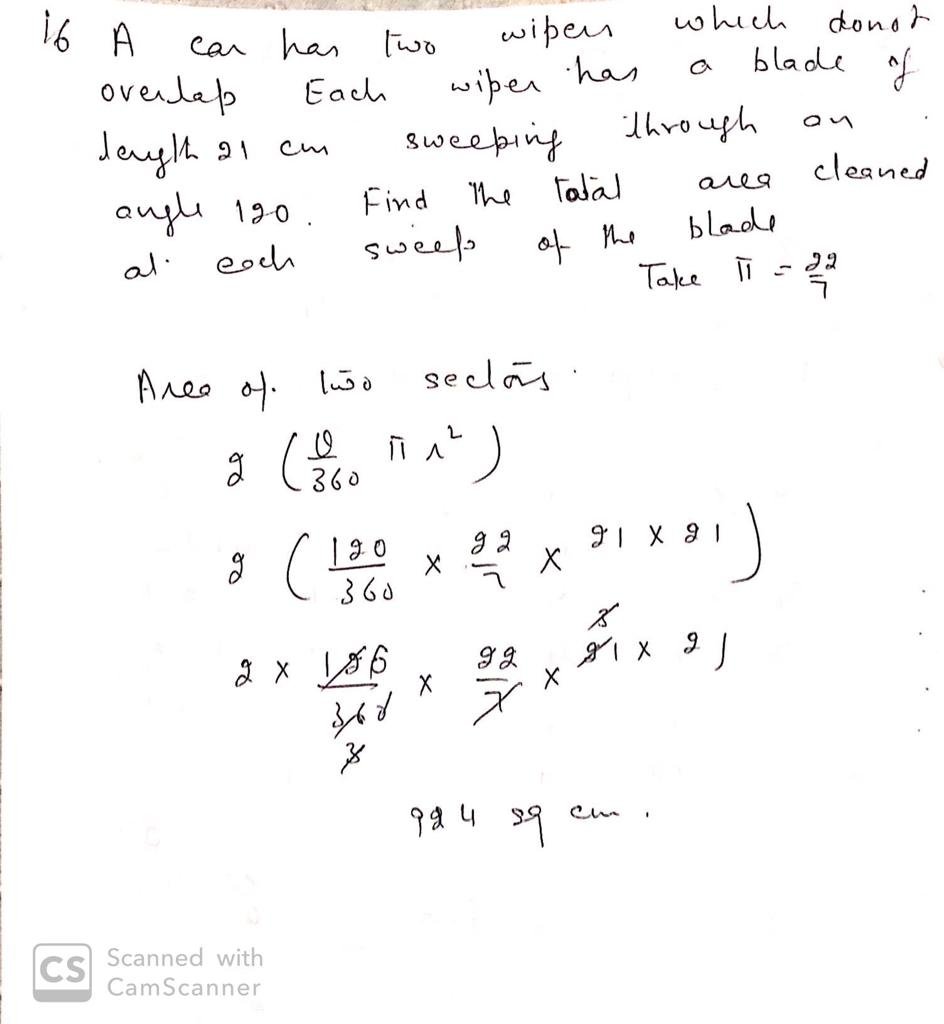 16 A car has two wipers which donot
overlap Each wiper has a blade of
length 21 cm sweeping through an
angle 120. Find the total area cleaned
at each sweep of the blade
Take π = 22/7
Area of two sectors
2 ( θ/360 π r² )
2 ( 120/360 × 22/7 × 21 × 21 )
2 × 120/360 × 22/7 × 21 × 21
3 3
924 sq cm.
CS Scanned with
CamScanner